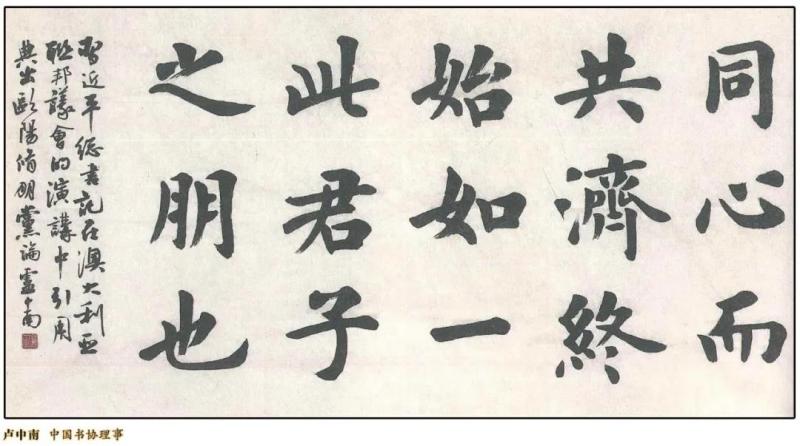 同心而
共濟終
始如一
此君子
之朋也
習近平總書記在澳大利亞
聯邦議會的演講中引用
典出歐陽脩朋黨論盧中南
卢中南 中国书协理事